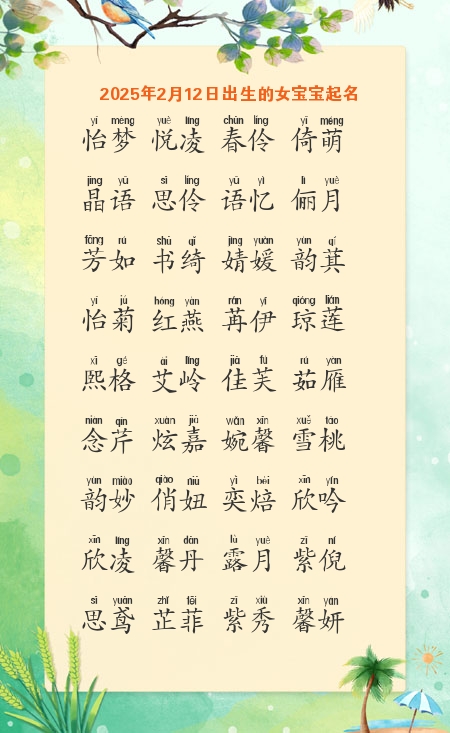 2025年2月12日出生的女宝宝起名
yí mèng yuè líng chūn líng yǐ méng
怡梦 悦凌 春伶 倚萌
jīng yǔ sī líng yǔ yì lì yuè
晶语 思伶 语忆 俪月
fāng rú shū qǐ jìng yuàn yùn qí
芳如 书绮 婧媛 韵萁
yí jú hóng yàn rǎn yī qióng lián
怡菊 红燕 苒伊 琼莲
xī gé ài lǐng jiā fú rú yàn
熙格 艾岭 佳芙 茹雁
niàn qín xuàn jiā wǎn xīn xuě táo
念芹 炫嘉 婉馨 雪桃
yùn miào qiào niǔ yì bèi xīn yín
韵妙 俏妞 奕焙 欣吟
xīn líng xīn dān lù yuè zǐ ní
欣凌 馨丹 露月 紫倪
sī yuān zhǐ fēi zǐ xiù xīn yán
思鸢 芷菲 紫秀 馨妍